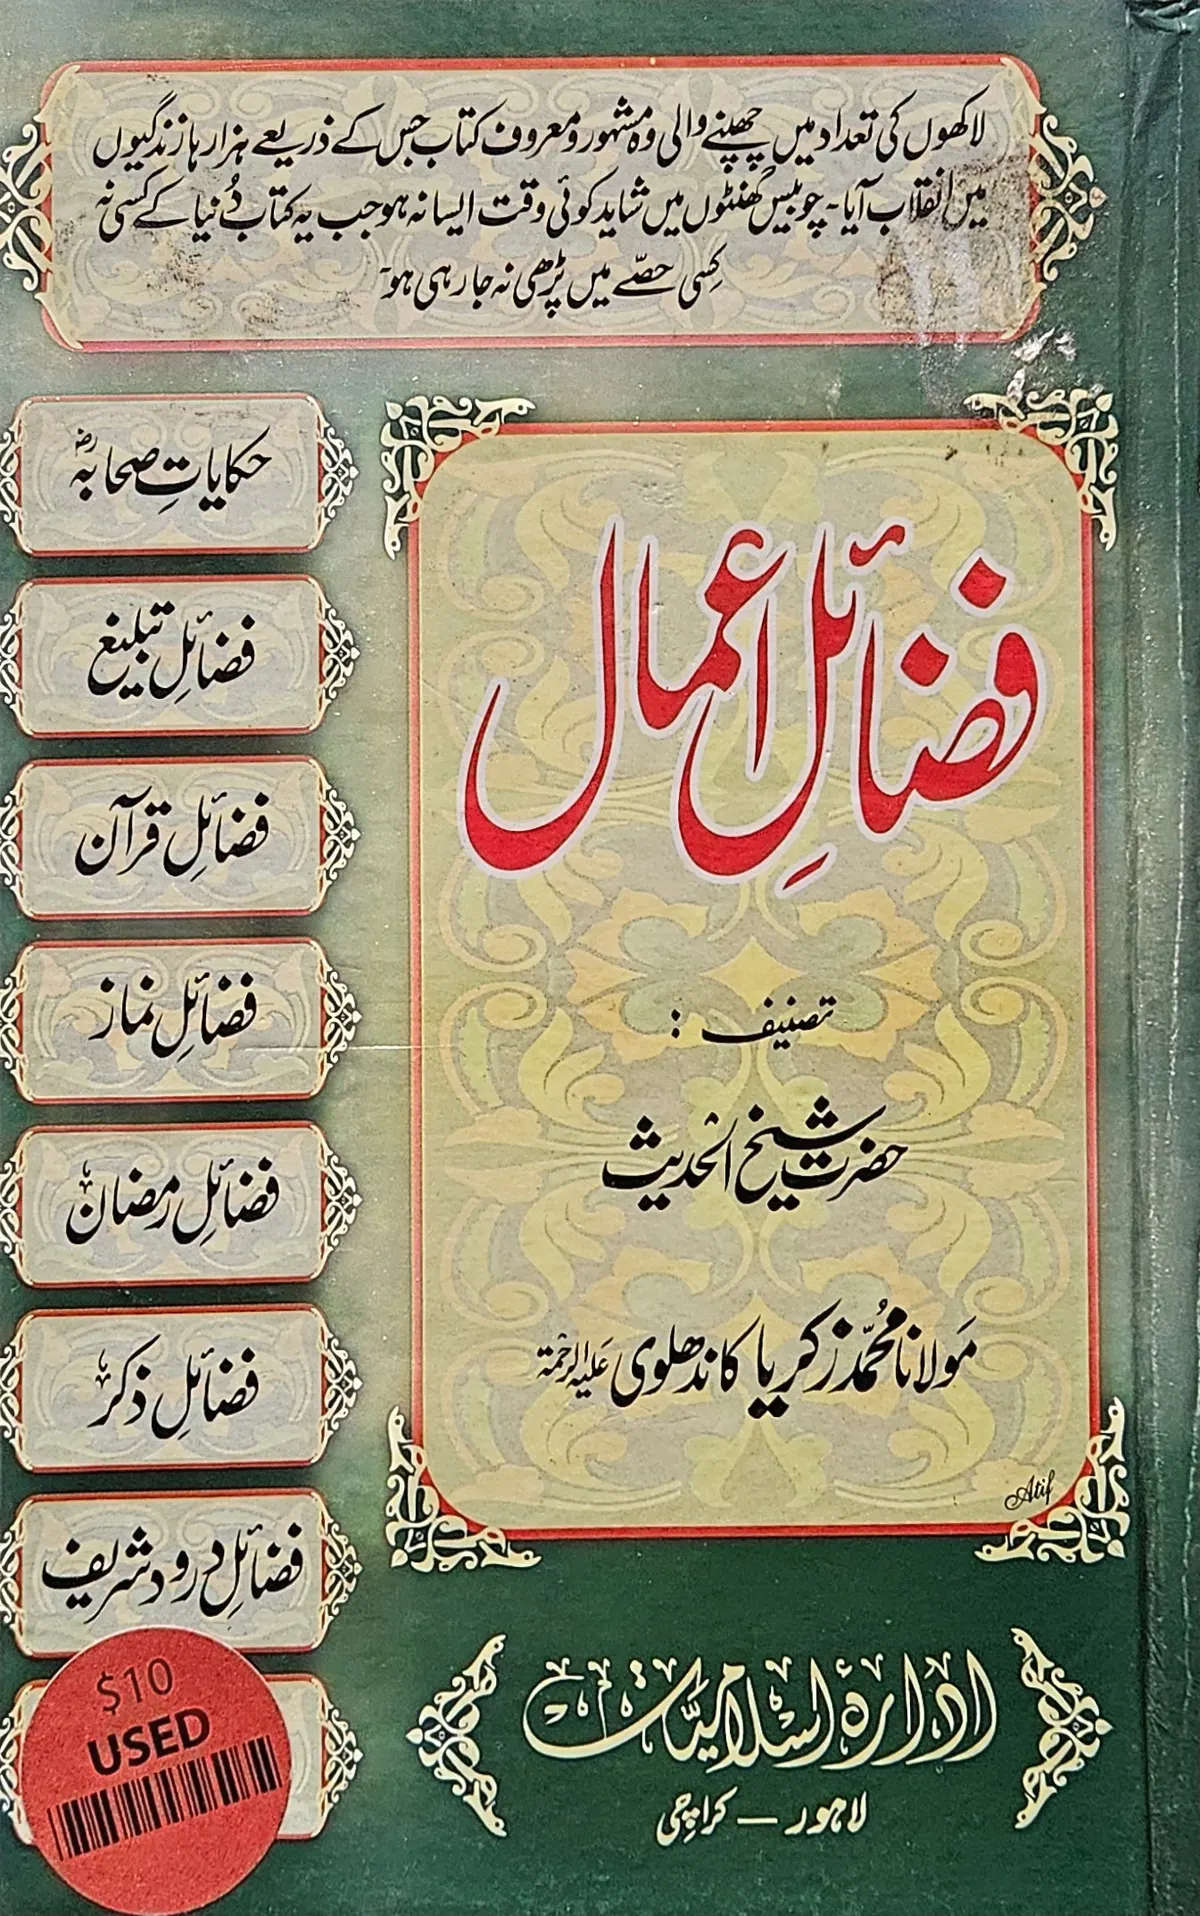 لاکھوں کی تعداد میں چھپنے والی وہ مشہور و معروف کتاب جس کے ذریعے ہزارہا زندگیوں
میں انقلاب آیا۔ چوبیس گھنٹوں میں شاید کوئی وقت ایسا نہ ہو جب یہ کتاب دُنیا کے کسی نہ
کسی حصّے میں پڑھی نہ جا رہی ہو۔
فضائلِ اعمال
تصنیف :
حضرت شیخ الحدیث
مولانا محمّد زکریا کاندھلوی علیہ الرحمۃ
Atif
حکایاتِ صحابہؓ
فضائلِ تبلیغ
فضائلِ قرآن
فضائلِ نماز
فضائلِ رمضان
فضائلِ ذکر
فضائلِ درود شریف
$10
USED
ادارۂ اسلامیات
لاہور – کراچی